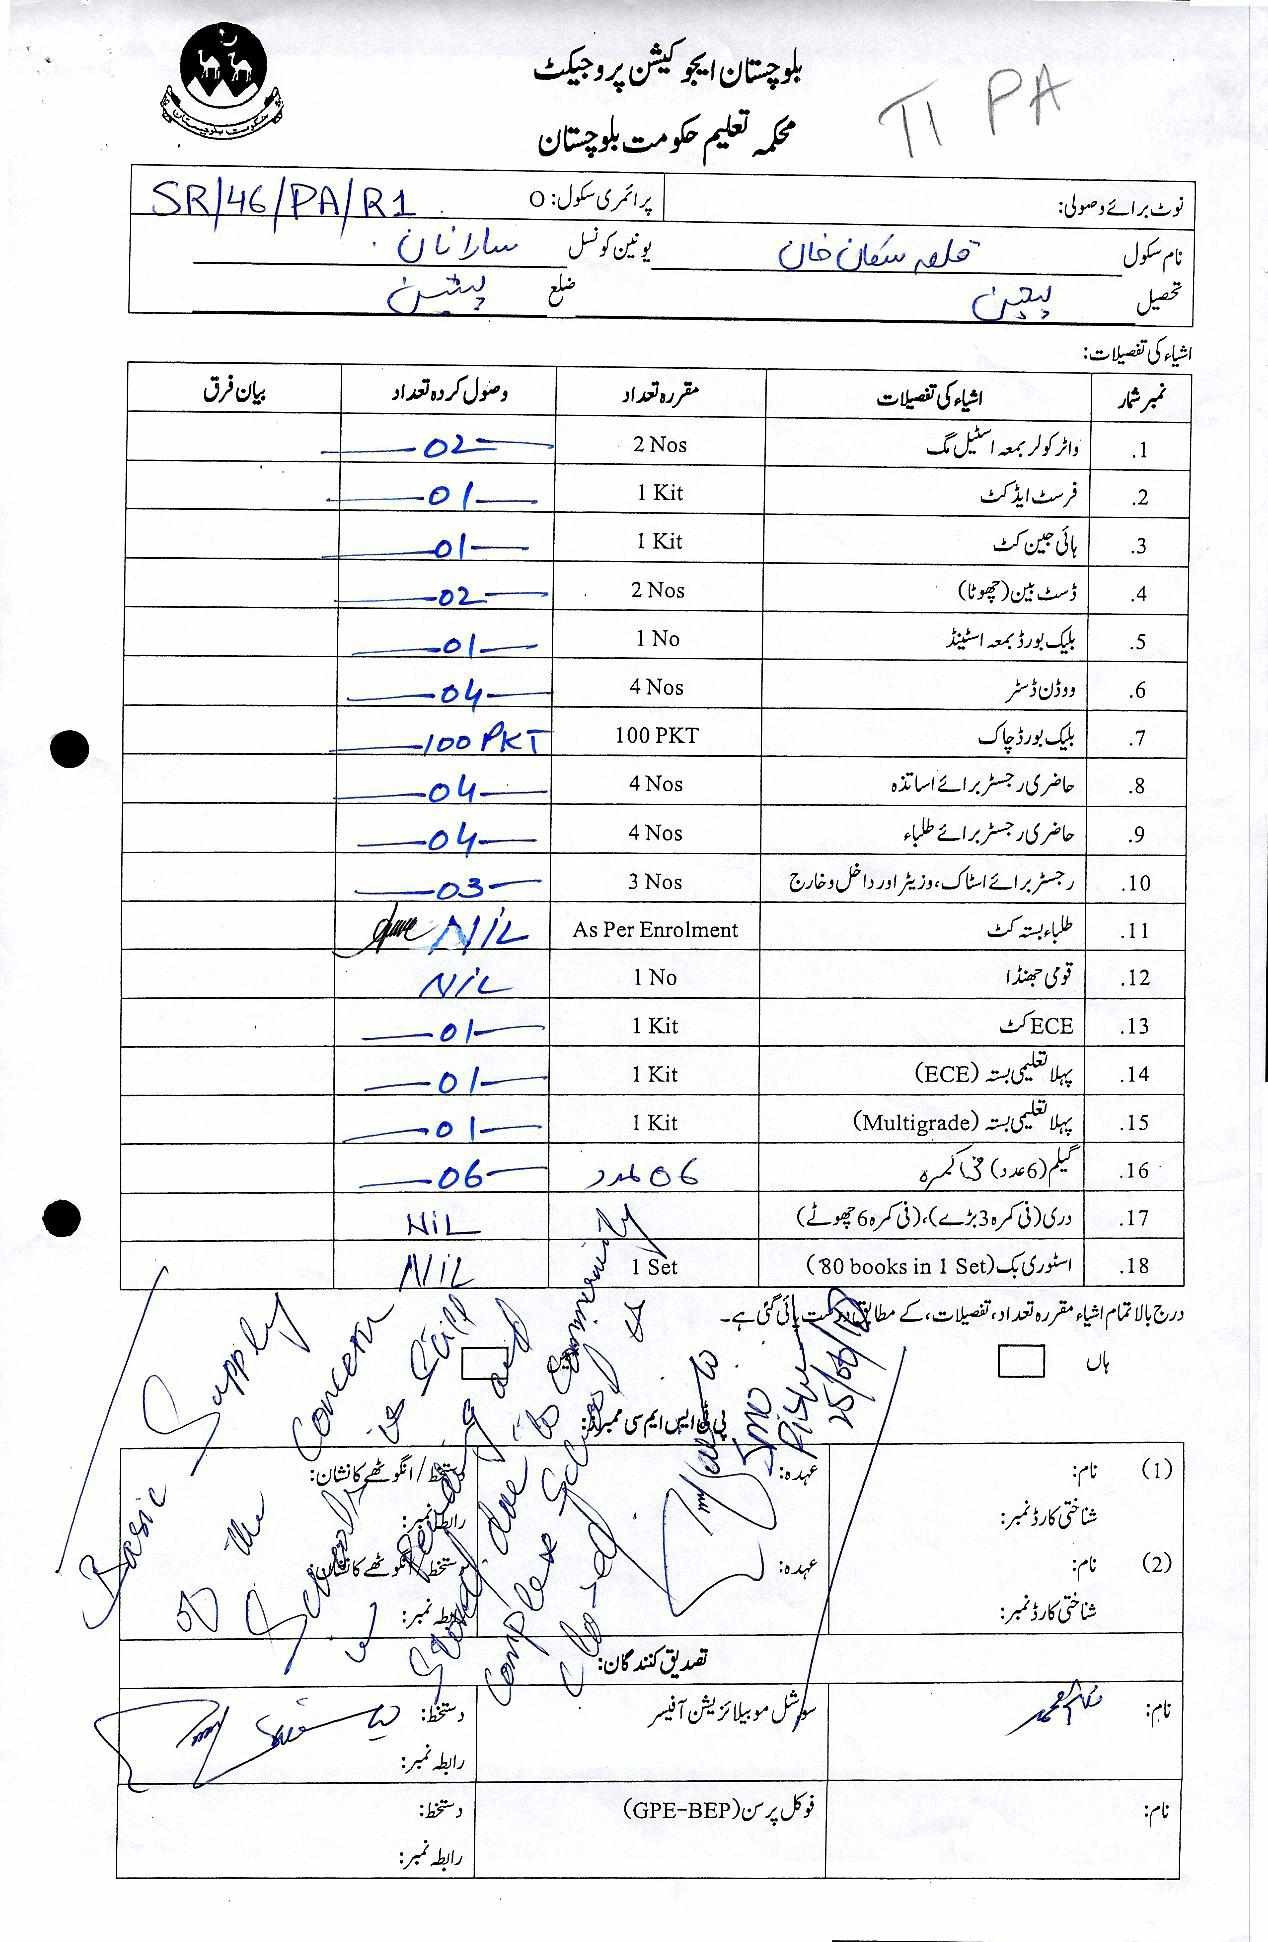 بلوچستان ایجوکیشن پروجیکٹ
محکمہ تعلیم حکومت بلوچستان
TI PA
حکومت بلوچستان
نوٹ برائے وصولی: پرائمری سکول: O SR/46/PA/R1
نام سکول قلعہ خان یونین کونسل سارانان
تحصیل ضلع پشین
اشیاء کی تفصیلات:
نمبر شمار اشیاء کی تفصیلات مقررہ تعداد وصول کردہ تعداد بیان فرق
1. واٹر کولر بمعہ اسٹیل مگ 2 Nos 02
2. فرسٹ ایڈ کٹ 1 Kit 01
3. ہائی جین کٹ 1 Kit 01
4. ڈسٹ بین (چھوٹا) 2 Nos 02
5. بلیک بورڈ بمعہ اسٹینڈ 1 No 01
6. ووڈن ڈسٹر 4 Nos 04
7. بلیک بورڈ چاک 100 PKT 100 PKT
8. حاضری رجسٹر برائے اساتذہ 4 Nos 04
9. حاضری رجسٹر برائے طلباء 4 Nos 04
10. رجسٹر برائے اسٹاک، وزیٹر اور داخل و خارج 3 Nos 03
11. طلباء بستہ کٹ As Per Enrolment NIL
12. قومی جھنڈا 1 No NIL
13. ECE کٹ 1 Kit 01
14. پہلا تعلیمی بستہ (ECE) 1 Kit 01
15. پہلا تعلیمی بستہ (Multigrade) 1 Kit 01
16. گیلم (6 عدد) فی کمرہ 06 عدد 06
17. دری (فی کمرہ 3 بڑے)، (فی کمرہ 6 چھوٹے) NIL
18. اسٹوری بک (80 books in 1 Set) 1 Set NIL
درج بالا تمام اشیاء مقررہ تعداد، تفصیلات، کے مطابق درست پائی گئی ہے۔
ہاں
Basic Supply
of the concern
School is still
pending and
due to community
complese School is
closed
SMO
Pishin
پی ٹی ایس ایم سی ممبران:
(1) نام: عہدہ: دستخط / انگوٹھے کا نشان:
شناختی کارڈ نمبر: رابطہ نمبر:
(2) نام: عہدہ: دستخط / انگوٹھے کا نشان:
شناختی کارڈ نمبر: رابطہ نمبر:
تصدیق کنندگان:
نام: سوشل موبیلائزیشن آفیسر دستخط:
رابطہ نمبر:
نام: فوکل پرسن (GPE-BEP) دستخط:
رابطہ نمبر: